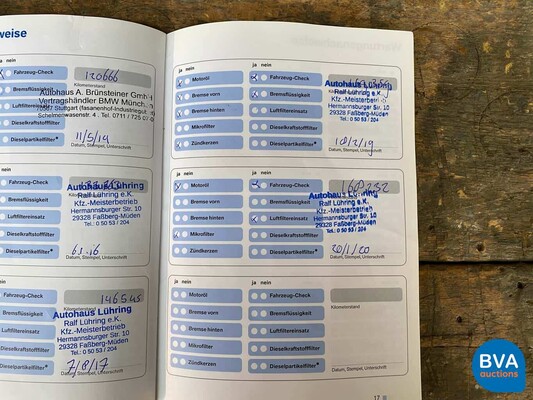 weise
nein
Fahrzeug-Check
120666
Kilometerstand
Bremsflüssigkeit
Autohaus A. Brünsteiner GmbH
Vertragshändler BMW Münch
Luftfiltereinsatz
70567 Stuttgart (Fasanenhof-Industriegebiet)
Schelmenwasenstr. 4. Tel. 0711 / 725 07-0
Dieselkraftstofffilter
Dieselpartikelfilter*
11/5/14
Datum, Stempel, Unterschrift
Fahrzeug-Check
Bremsflüssigkeit
Luftfiltereinsatz
Dieselkraftstofffilter
Dieselpartikelfilter*
Autohaus Lühring
Ralf Lühring e.K.
Kfz.-Meisterbetrieb
Hermannsburger Str. 10
29328 Faßberg-Müden
Tel.: 0 50 53 / 204
Datum, Stempel, Unterschrift
nein
Fahrzeug-Check
146545
Kilometerstand
Bremsflüssigkeit
Luftfiltereinsatz
Dieselkraftstofffilter
Dieselpartikelfilter*
Autohaus Lühring
Ralf Lühring e.K.
Kfz.-Meisterbetrieb
Hermannsburger Str. 10
29328 Faßberg-Müden
Tel.: 0 50 53 / 204
7/8/17
Datum, Stempel, Unterschrift
ja nein
ja nein
Motoröl
Fahrzeug-Check
Bremse vorn
Bremsflüssigkeit
Bremse hinten
Luftfiltereinsatz
Mikrofilter
Dieselkraftstofffilter
Zündkerzen
Dieselpartikelfilter*
Autohaus Lühring
Ralf Lühring e.K.
Kfz.-Meisterbetrieb
Hermannsburger Str. 10
29328 Faßberg-Müden
Tel.: 0 50 53 / 204
18/2/19
Datum, Stempel, Unterschrift
ja nein
ja nein
Motoröl
Fahrzeug-Check
168232
Bremse vorn
Bremsflüssigkeit
Bremse hinten
Luftfiltereinsatz
Mikrofilter
Dieselkraftstofffilter
Zündkerzen
Dieselpartikelfilter*
Autohaus Lühring
Ralf Lühring e.K.
Kfz.-Meisterbetrieb
Hermannsburger Str. 10
29328 Faßberg-Müden
Tel.: 0 50 53 / 204
20/1/20
Datum, Stempel, Unterschrift
ja nein
ja nein
Motoröl
Fahrzeug-Check
Kilometerstand
Bremse vorn
Bremsflüssigkeit
Bremse hinten
Luftfiltereinsatz
Mikrofilter
Dieselkraftstofffilter
Zündkerzen
Dieselpartikelfilter*
Datum, Stempel, Unterschrift
17
BVA
auctions